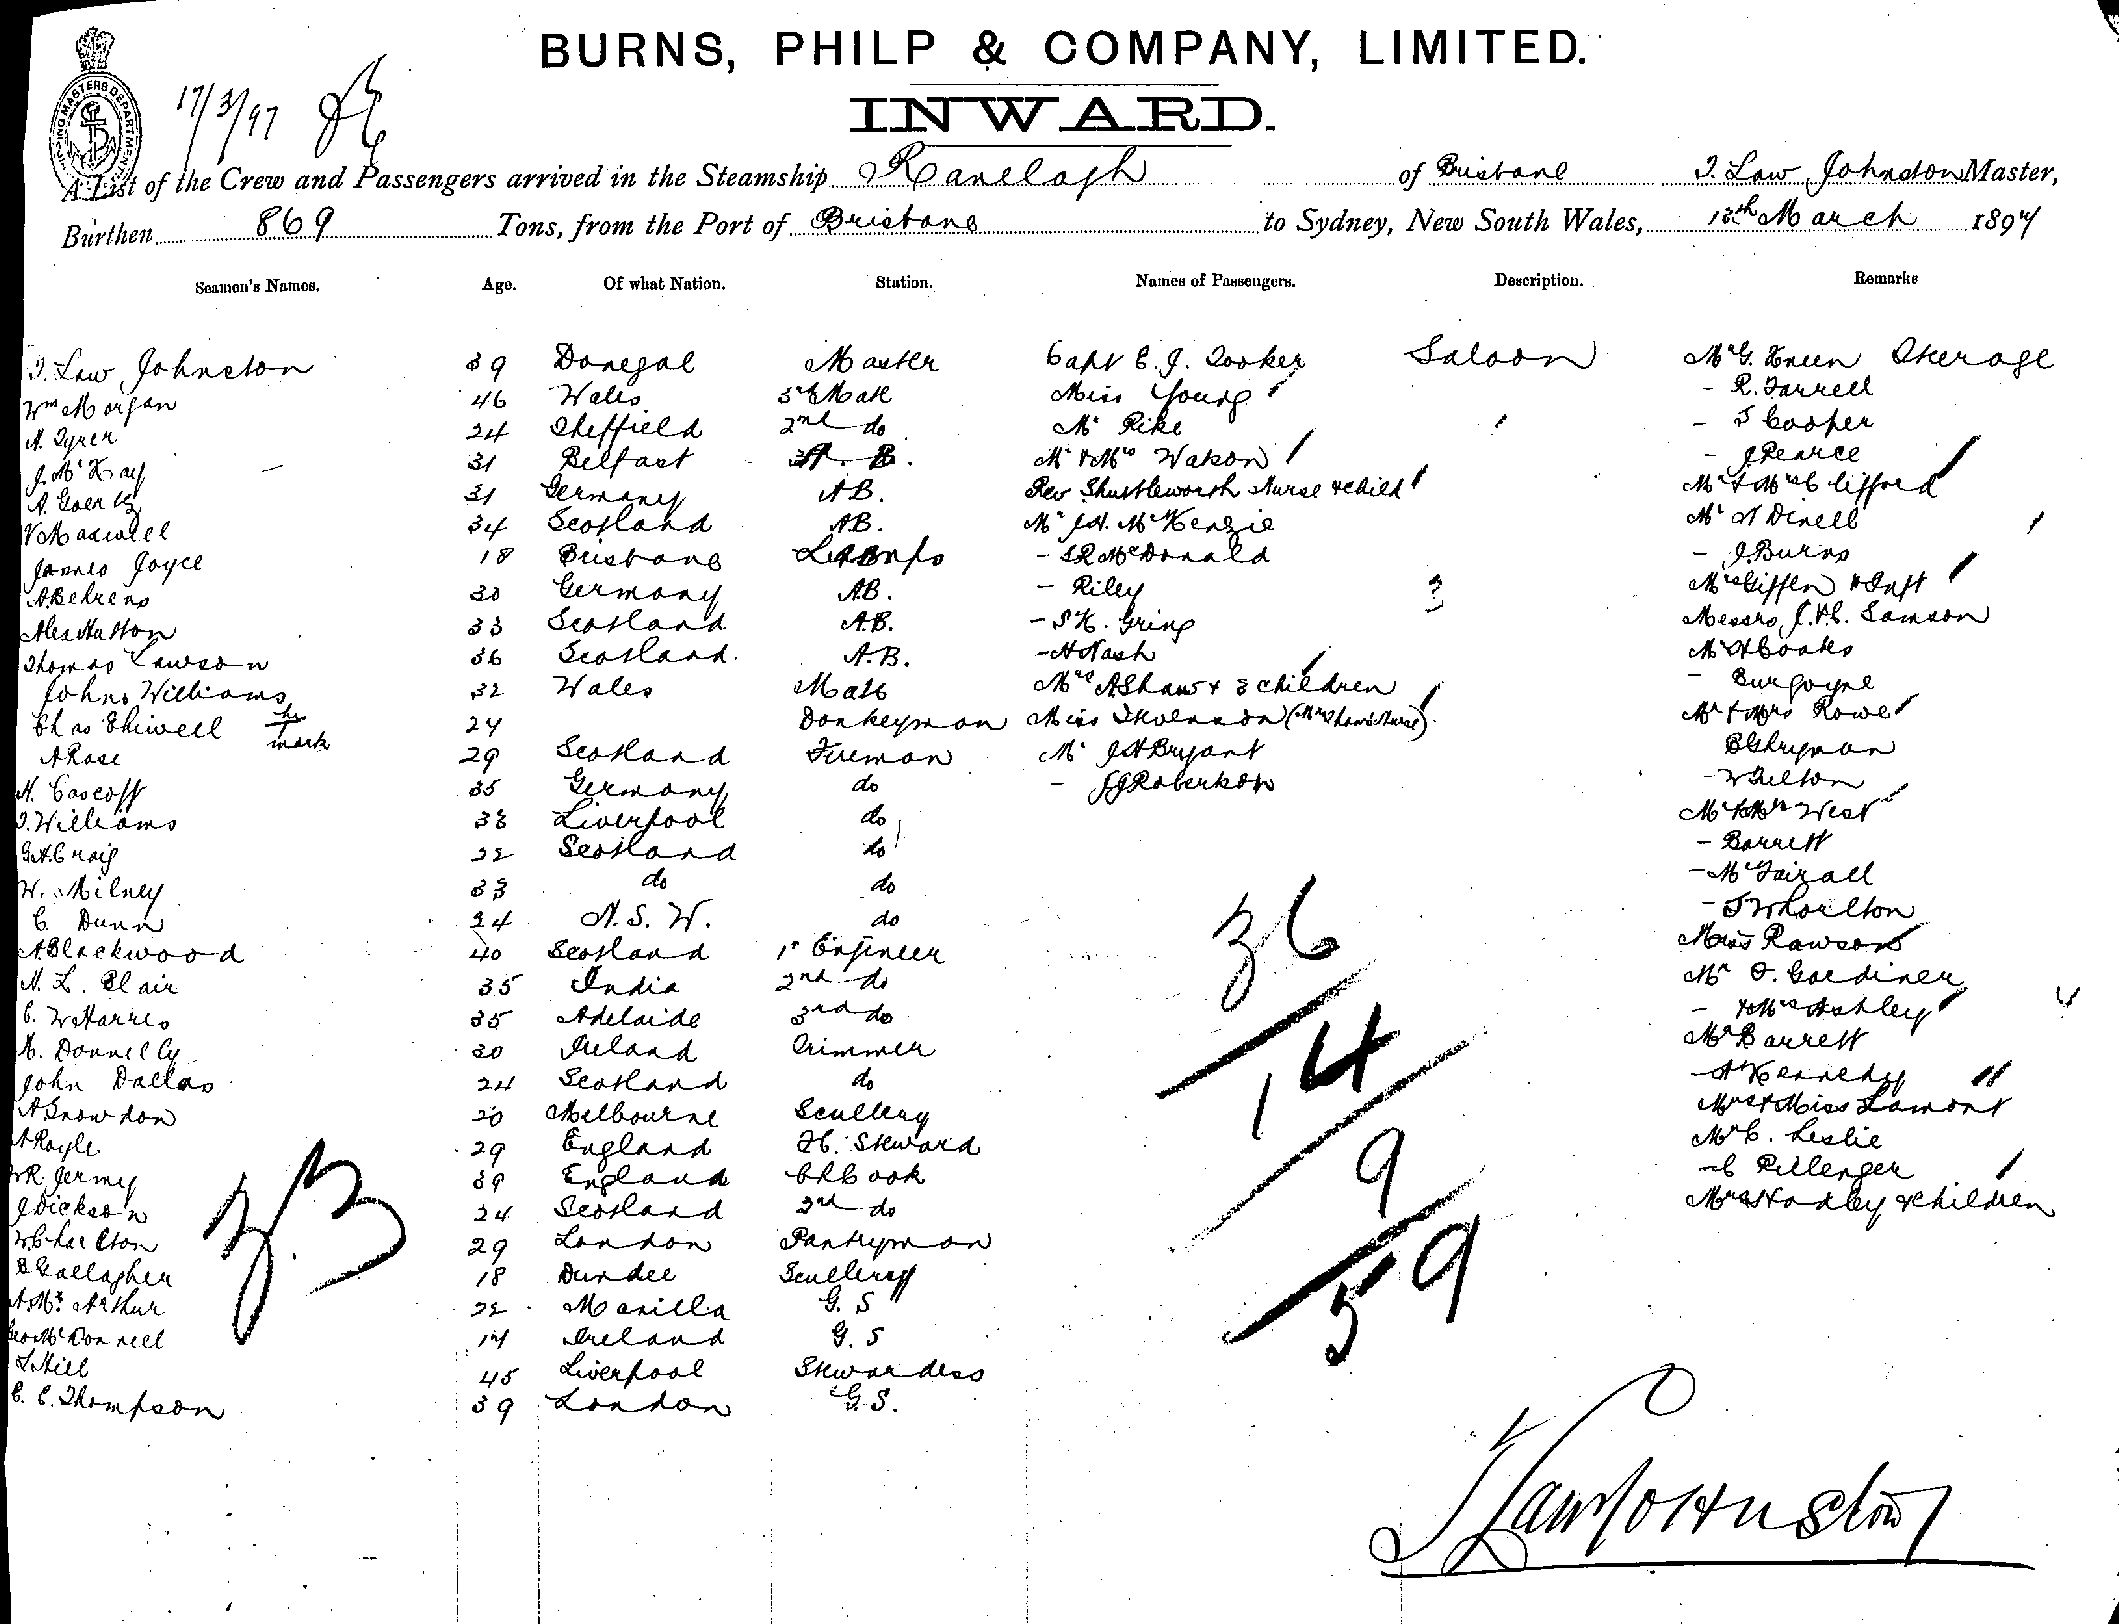 BURNS, PHILP & COMPANY, LIMITED.
INWARD.
17/3/97
A List of the Crew and Passengers arrived in the Steamship Ranelagh of Brisbane T. Law Johnston Master,
Burthen 869 Tons, from the Port of Brisbane to Sydney, New South Wales, March 1897
Seamen's Names. Age. Of what Nation. Station. Names of Passengers. Description. Remarks
T. Law Johnston 39 Donegal Master Capt E. J. Tooker Saloon Mr G. Green Steerage
Wm Morgan 46 Wales Mate Miss Young - R. Farrell
N. Tyrer 24 Sheffield 2nd do Mr Pike - S Cooper
J. McKay 31 Belfast A. B. Mr & Mrs Watson - J Pearce
A. Goertz 31 Germany AB. Rev Shuttleworth Nurse & Child Mr & Mrs Clifford
V Maxwell 34 Scotland AB. Mr J.H. McKenzie Mr
James Joyce 18 Brisbane Lamps - S.R McDonald - J. Burns
A Behrens 30 Germany AB. - Riley Mrs Giffen & Inft
Alex Hutton 33 Scotland A.B. - S H. Gring Messrs J. & C. Samson
Thomas Lawson 36 Scotland. A.B. - H Nash Mr H Cooks
John Williams 32 Wales Mate Mrs A Shaw & 3 children - Burgoyne
Chas 24 Donkeyman Miss Stevenson (Mrs Shaws Nurse) Mr & Mrs Rowe
mark
A Rose 29 Scotland Fireman Mr J H Bryant
H. 35 Germany do - J J Robertson - W Hilton
T. Williams 38 Liverpool do Mr & Mrs West
G.H. Craig 22 Scotland do - Barrett
W. Milney 33 do do - McFairall
C. Dunn 24 N. S. W. do
A Blackwood 40 Scotland 1st Engineer Miss Rawson
N. L. Blair 35 India 2nd do Mr F. Gardiner
C. W Harris 35 Adelaide 3rd do - & Mrs Ashley
M. Donnelly 30 Ireland Trimmer Mr Barrett
John Dallas 24 Scotland do - A Kennedy
A Snowdon 20 Melbourne Scullery Mrs & Miss Lamont
A Royle 29 England Ch. Steward Mr C. Leslie
W R Jermy 39 England Ch Cook - C Pillenger
J Dickson 24 Scotland 2nd do Mrs Hoadley & Children
W Charlton 29 London Pantryman
B Gallagher 18 Dundee Scullery
A Mc Arthur 22 Manilla G. S
Geo McConnell 17 Ireland G. S
L Hill 45 Liverpool Stewardess
C. C. Thompson 39 London G. S.
33
36
14
9
59
T Law Johnston